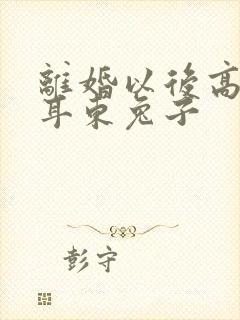 離婚以後高
耳朵兔子
彭守